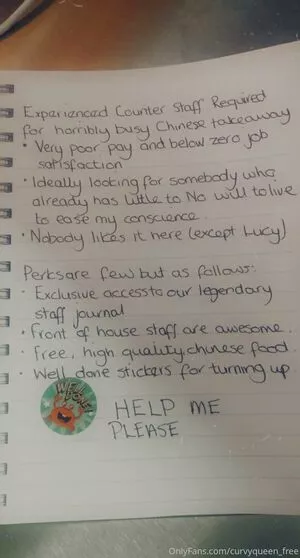 Experienced Counter Staff Required
for horribly busy Chinese takeaway
• Very poor pay and below zero job
satisfaction
• Ideally looking for somebody who
already has little to No will to live
to ease my conscience.
• Nobody likes it here (except Lucy)
Perks are few but as follows:
• Exclusive access to our legendary
staff journal
• Front of house staff are awesome.
• Free, high quality, chinese food.
• Well done stickers for turning up
WELL DONE!
HELP ME
PLEASE
OnlyFans.com/curvyqueen_free